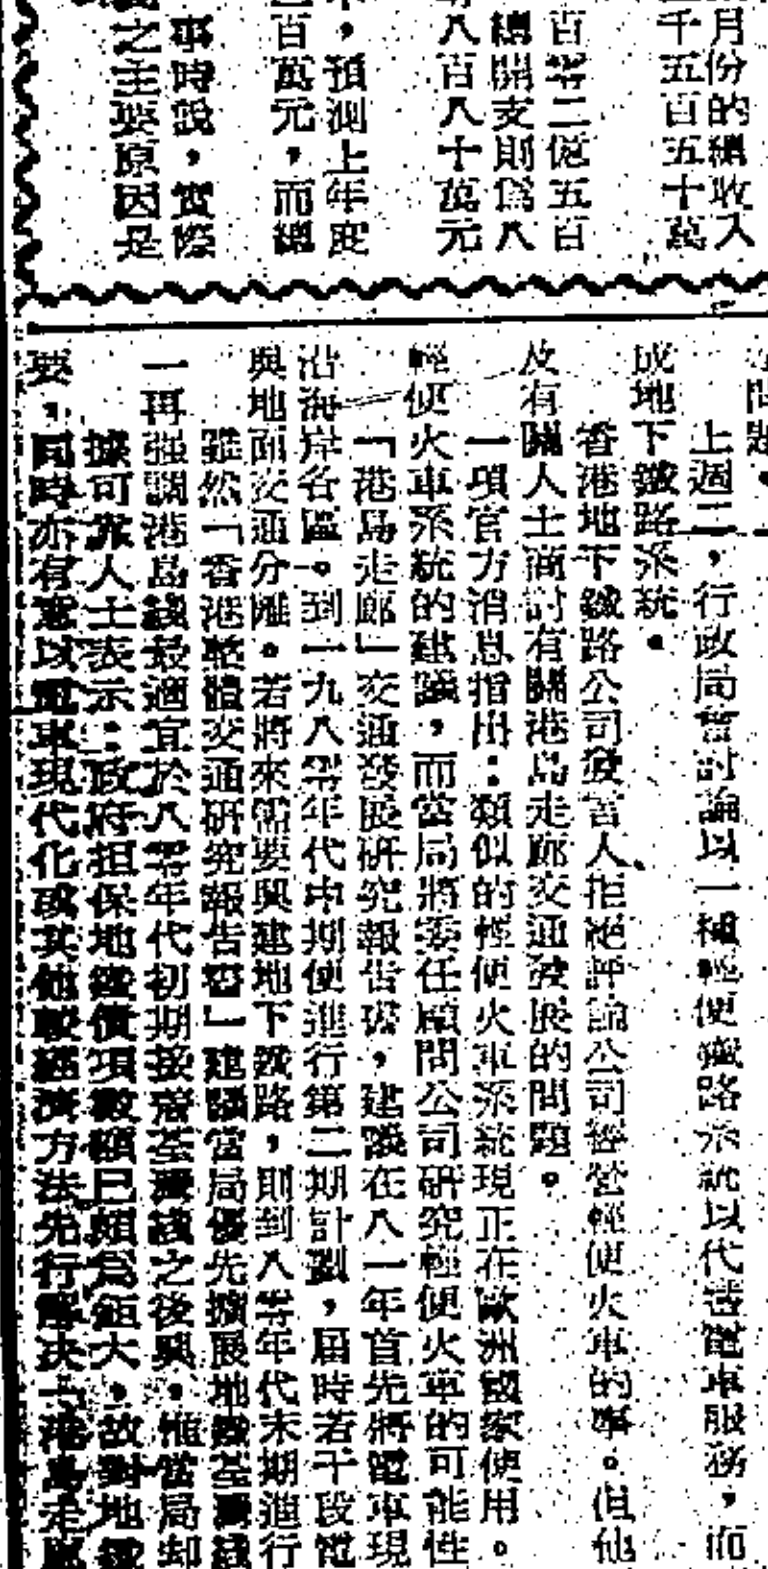 月份的總收入
千五百五十萬
百零二億五百
總開支則為八
八百八十萬元
，預測上年度
百萬元，而總
事時說，實際
之主要原因是
問題。
上週二，行政局曾討論以一種輕便鐵路系統以代替電車服務，而
成地下鐵路系統。
香港地下鐵路公司發言人拒絕評論公司經營輕便火車的事。但他
及有關人士商討有關港島走廊交通發展的問題。
一項官方消息指出：類似的輕便火車系統現正在歐洲國家使用。
輕便火車系統的建議，而當局將委任顧問公司研究輕便火車的可能性
「港島走廊」交通發展研究報告書，建議在八一年首先將電車現
沿海岸各區。到一九八零年代中期便進行第二期計劃，屆時若干段電
與地面交通分離。若將來需要興建地下鐵路，則到八零年代末期進行
雖然「香港整體交通研究報告書」建議當局優先擴展地鐵荃灣線
一再强調港島綫最適宜於八零年代初期接着荃灣綫之後興，惟當局却
據可靠人士表示：政府担保地鐵債項數額已頗為鉅大，故對地鐵
要，同時亦有意以電車現代化或其他較經濟方法先行解決「港島走廊